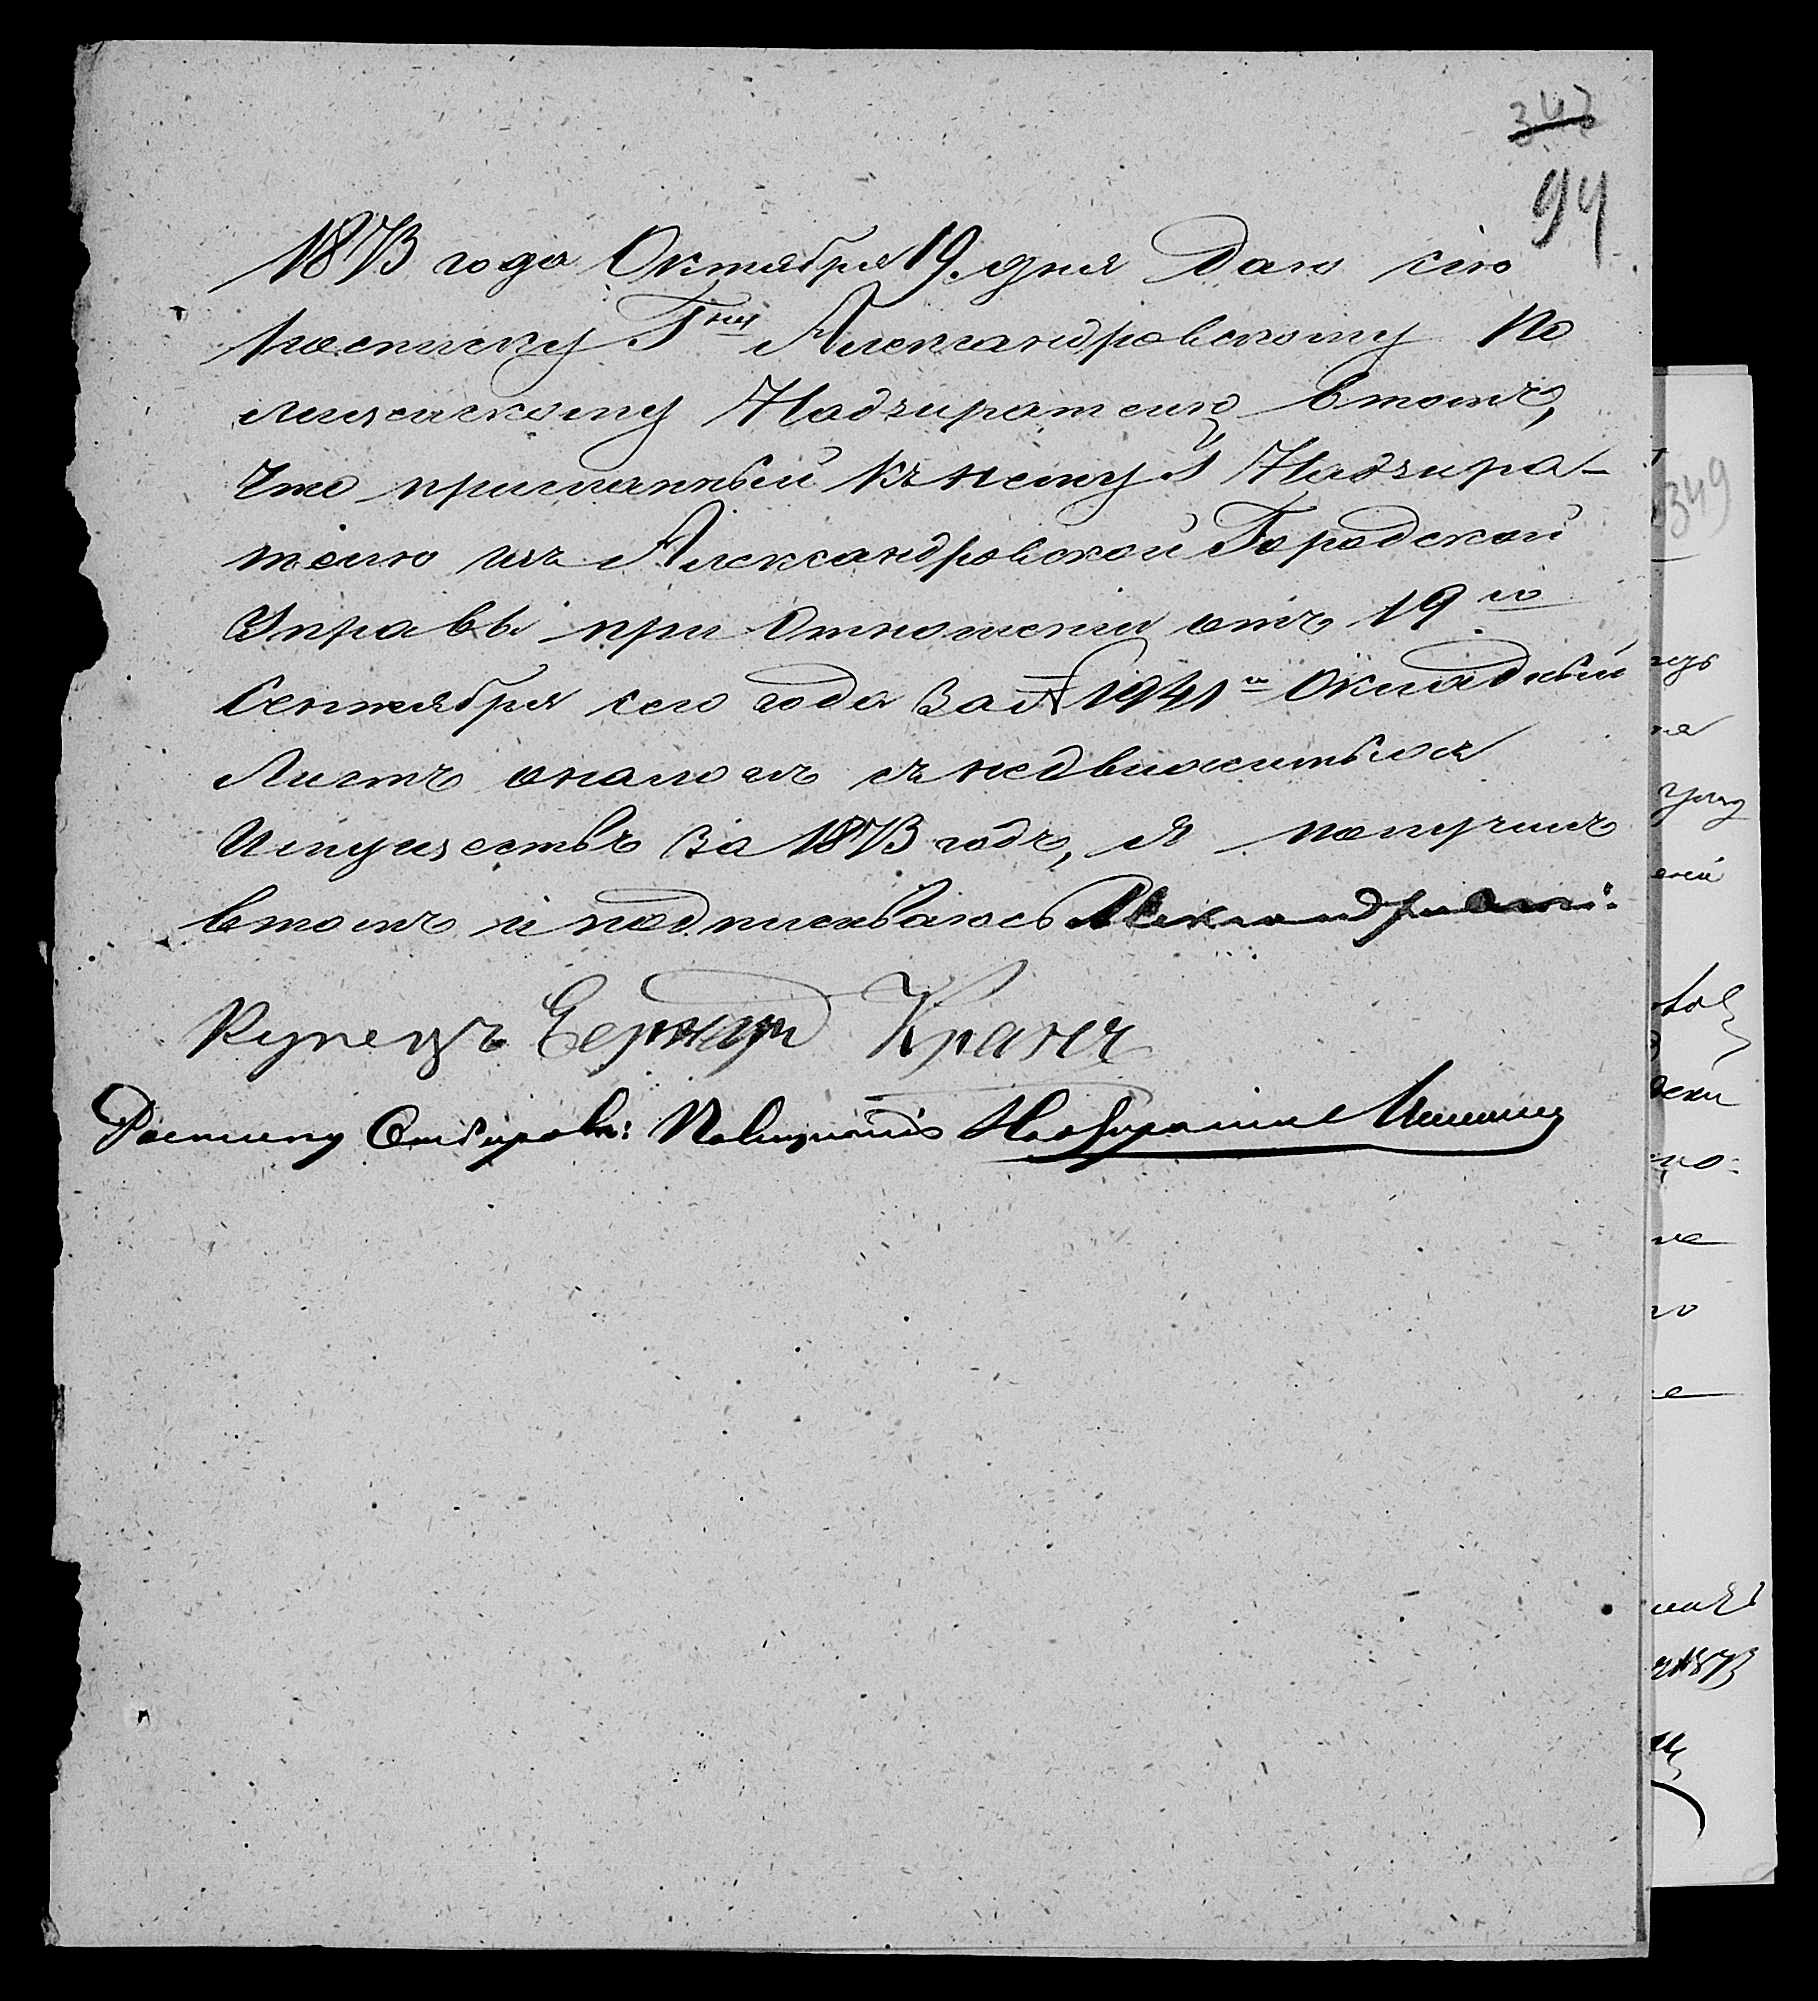 347
94
1873 года Октября 19. дня Даю сію
росписку Гну Александровскому По
лицейскому Надзирателю втомъ,
Что присланный къ нему Надзира-
телю изъ Александровской Городской
Управы при Отношении отъ 19го
Сентября сего года За № 1941м Окладный
Листъ оналогѣ съ недвижимыхъ
Имуществъ За 1873 годъ, я получилъ
втомъ и подписываюсь
Купецъ Бернгардъ Кранъ
Росписку Отбиралъ: Полицейскій Надзиратель
349